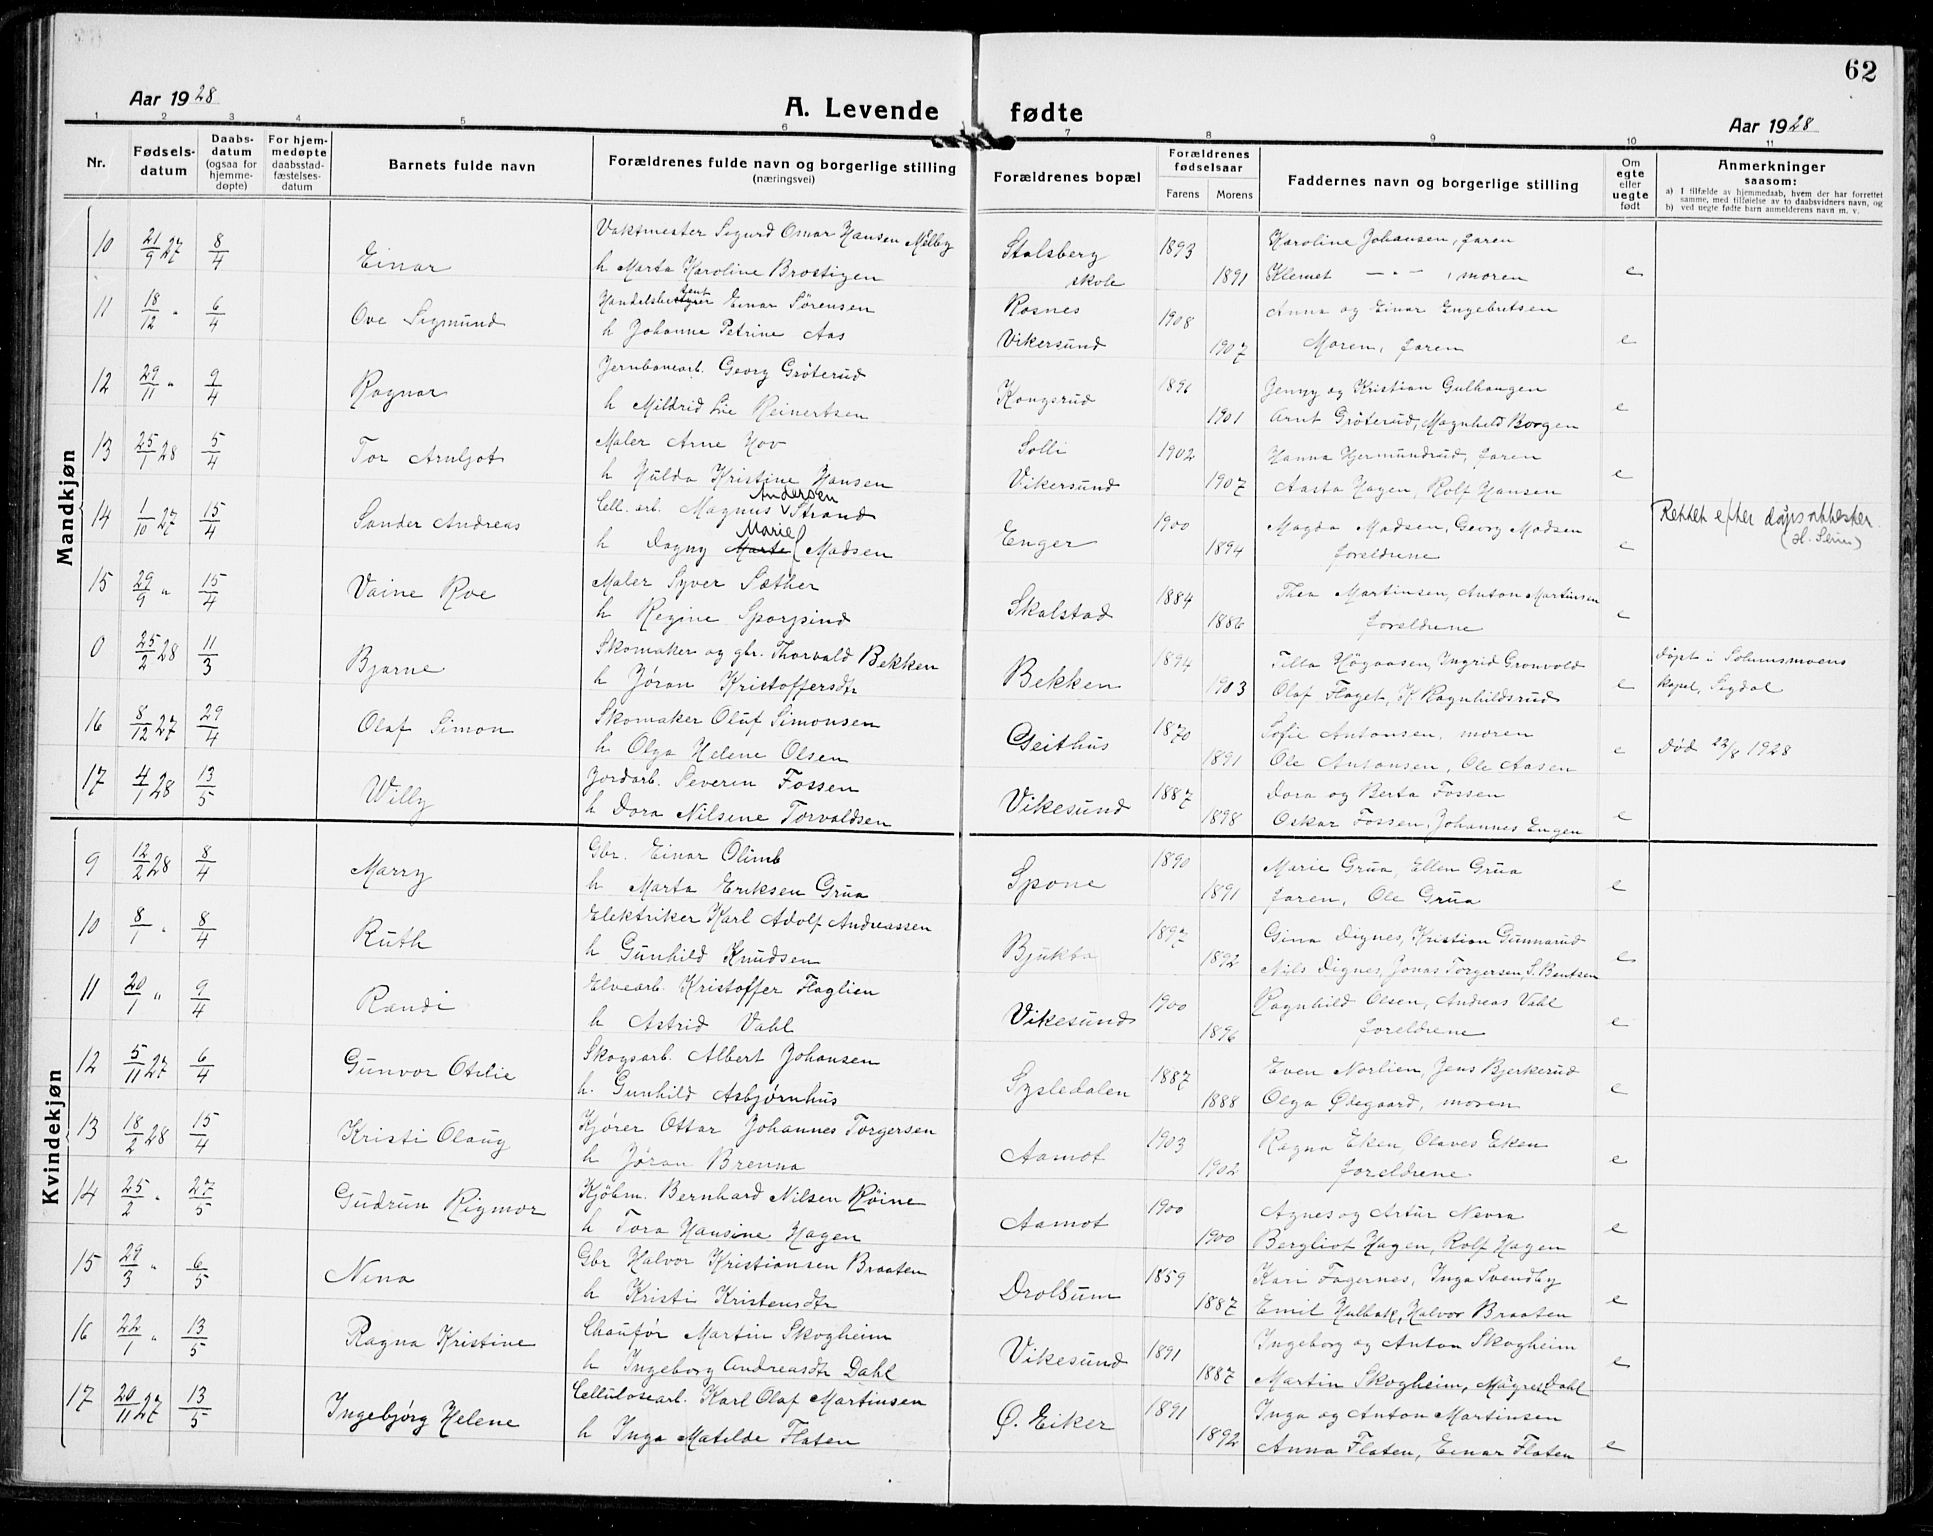 62
Aar 1928
A. Levende fødte
Aar 1928
1 2 3 4 5 6 7 8 9 10 11
Nr.
Fødsels-
datum
Daabs-
datum
(ogsaa for
hjemme-
døpte)
For hjem-
medøpte
daabsstad-
fæstelses-
datum
Barnets fulde navn
Forældrenes fulde navn og borgerlige stilling
(næringsvei)
Forældrenes bopæl
Forældrenes
fødselsaar
Farens Morens
Faddernes navn og borgerlige stilling
Om
egte
eller
uegte
født
Anmerkninger
saasom:
a) I tilfælde av hjemmedaab, hvem der har forrettet
samme, med tilføielse av to daabsvidners navn, og
b) ved uegte fødte barn anmelderens navn m. v.
Mandkjøn
10 21/9 27 8/4 Einar Vaktmester Sigurd Omar Hansen Melby Stalsberg 1893 Karoline Johansen, faren
h Marta Karoline Brostigen skole 1891 Klemet — " — , moren e
11 18/12 " 6/4 Ove Sigmund Einar Sørensen Rosnes 1908 Anna og Einar Engebretsen
h Johanne Petrine Aas Vikersund 1907 Moren, faren e
12 29/11 " 9/4 Ragnar Jernbanearb. Georg Gröterud Kongsrud 1896 Jenny og Kristian Gulhaugen
h Mildrid Lie Reinertsen 1901 Arnt Gröterud, Magnhild Borgen e
13 25/1 28 5/4 Tor Arnljot Maler Arne Hov Solli 1902 Hanna Hjermundrud, faren
h Hulda Kristine Hansen Vikersund 1907 Aasta Hagen, Rolf Hansen e
14 1/10 27 15/4 Sander Andreas Cell. arb. Magnus Andersen Strand Enger 1900 Magda Madsen, Georg Madsen Rettet efter dåpsattester
h Dagny Marte Marie Madsen 1894 foreldrene e
15 29/9 " 15/4 Vaine Roe Maler Syver Sæther Skalstad 1884 Thea Martinsen, Anton Martinsen
h Regine Sparpind 1886 foreldrene e
0 25/2 28 11/3 Bjarne Skomaker og gbr. Thorvald Bekken Bekken 1894 Tilla Högaasen, Ingrid Gronvold Døpt i Solumsmoens
h Jöran Kristoffersdtr 1903 Olaf Flaget, K. Ragnhildsrud e kapel, Sigdal
16 8/12 27 29/4 Olaf Simon Skomaker Oluf Simonsen Geithus 1870 Sofie Antonsen, moren
h. Olga Helene Olsen 1891 Ole Antonsen, Ole Aasen e Død 22/8 1928
17 4/1 28 13/5 Willy Jordarb. Severin Fossen Vikesund 1887 Dora og Berta Fossen
h Dora Nilsene Torvaldsen 1898 Oskar Fossen, Johannes Engen e
Kvindekjøn
9 12/2 28 8/4 Marry Gbr. Einar Olimb Spone 1890 Marie Grua, Ellen Grua
h Marta Eriksen Grua 1891 faren, Ole Grua e
10 8/1 " 8/4 Ruth Elektriker Karl Adolf Andreassen Bjukta 1897 Gina Dignes, Kristian Gunnarud
h Gunhild Knudsen 1892 Nils Dignes, Jonas Torgersen, S. Bentsen e
11 20/1 " 9/4 Randi Elvearb. Kristoffer Haglien Vikesund 1900 Ragnhild Olsen, Andreas Vahl
h Astrid Vahl 1896 foreldrene e
12 5/11 27 6/4 Gunvor Otilie Skogsarb. Albert Johansen Sysledalen 1887 Even Norlien, Jens Bjerkerud
h. Gunhild Asbjørnhus 1888 Olga Ødegaard, moren e
13 18/2 28 15/4 Kristi Olaug Kjører Ottar Johannes Torgersen Aamot 1903 Ragna Eken, Olaves Eken
h Jöran Brenna 1902 foreldrene e
14 25/2 " 27/5 Gudrun Rigmor Kjöbm. Bernhard Nilsen Röine Aamot 1900 Agnes og Artur Nevra
h Tora Hansine Hagen 1900 Bergliot Hagen, Rolf Hagen e
15 29/3 " 6/5 Nina Gbr Halvor Kristiansen Braaten Drolsum 1859 Kari Fagernes, Inga Svendby
h Kristi Kristensdtr 1887 Emil Hulbak, Halvor Braaten e
16 22/1 " 13/5 Ragna Kristine Chauför Martin Skogheim Vikesund 1891 Ingeborg og Anton Skogheim
h Ingeborg Andreasdtr Dahl 1887 Martin Skogheim, Dahl e
17 20/11 27 13/5 Ingebjørg Helene Cellulosearb. Karl Olaf Martinsen Ø. Eiker 1891 Inga og Anton Martinsen
h Inga Matilde Flaten 1892 Anna Flaten, Einar Flaten e